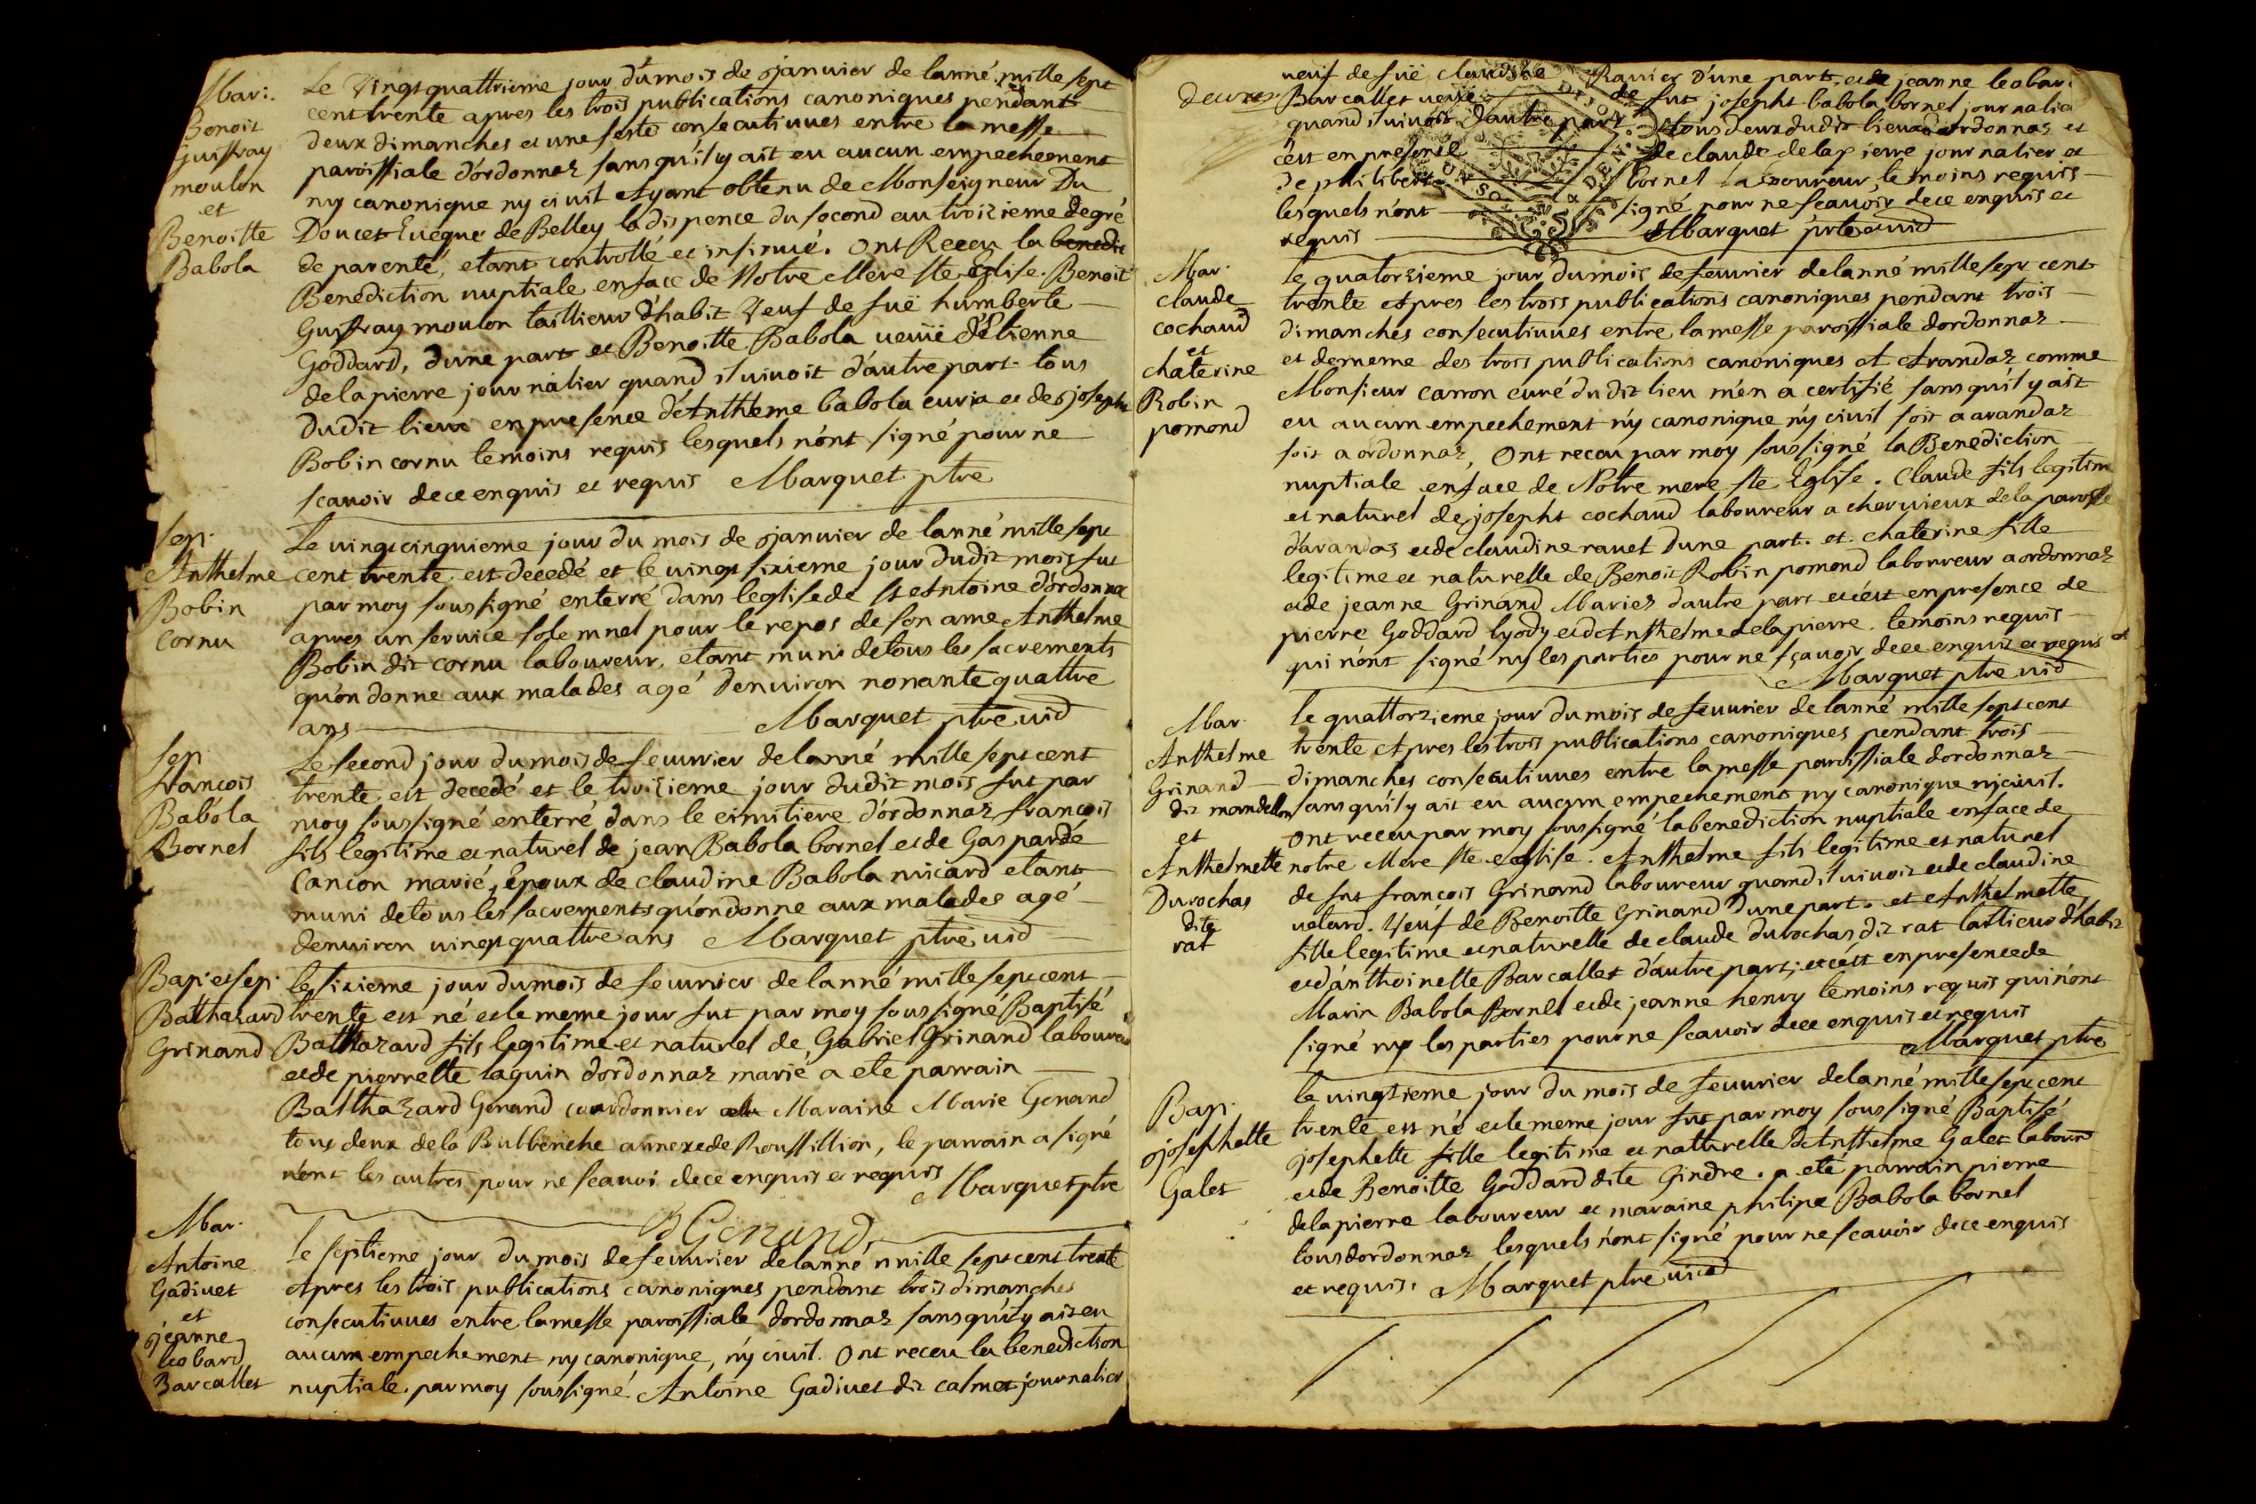 Mari.
Benoit
Guiffray
moulon
et
Benoitte
Babola
Le Vingt quattrieme jour du mois de janvier de lanné mille sept
cent trente apres les trois publications canoniques pendant
deux dimanches et une feste consecutiuues entre la messe
paroissiale d'ordonnaz sans qu'il y ait eu aucun empechement
ny canonique ny ciuil Ayant obtenu de Monseigneur Du
Doucet Eueque de Belley la dispence du second au troisieme degré
de parenté, etant controllé et insinué. Ont Receu la benedic
Benediction nuptiale en face de Notre Mere ste Eglise. Benoit
Guiffray moulon taillieur d'habit Veuf de fuë humberte
Goddard, d'une part et Benoitte Babola ueuuë d'Etienne
delapierre journalier quand il uiuoit d'autre part. tous
dudit lieux en presence d'Anthleme babola curia et de joseph
Robin cornu temoins requis lesquels n'ont signé pour ne
scauoir de ce enquis et requis Marquet ptre
sep.
Anthelme
Robin
cornu
Le uingt cinquieme jour du mois de janvier de lanné mille sept
cent trente est decedé et le uingt sixieme jour dudit mois fut
par moy soussigné enterré dans leglise de St Antoine d'ordonnaz
apres un seruice solemnel pour le repos de son ame Anthelme
Robin dit cornu laboureur, etant muni de tous les sacrements
qu'on donne aux malades agé d'enuiron nonante quattre
ans Marquet ptre uid
sep.
francois
Babola
Bornel
Le second jour du mois de feuurier de lanné mille sept cent
trente est decedé et le troisieme jour dudit mois fut par
moy soussigné enterré dans le cimitiere d'ordonnaz francois
fils legitime et naturel de jean Babola bornel et de Gasparde
Cancon marié, Epoux de claudine Babola micard etant
muni de tous les sacrements qu'on donne aux malades agé
denuiron uingt quattre ans Marquet ptre uid
Bap. et sep.
Balthazard
Grinand
le sixieme jour du mois de feuurier de lanné mille sept cent
trente est né et le meme jour fut par moy soussigné Baptisé
Balthazard fils legitime et naturel de Gabriel Grinand laboureur
et de pierrette laguin d'ordonnaz marié a ete parrain
Balthazard Genand cordonnier Maraine Marie Genand
tous deux de la Bulbenche annexe de Roussillion, le parrain a signé
n'ont les autres pour ne scauoi de ce enquis et requis Marquet ptre
B Genand
Mar.
Antoine
Gadiuet
et
jeanne
leobard
Barcallet
le septieme jour du mois de feuurier de lanné mille sept cent trente
Apres les trois publications canoniques pendant trois dimanches
consecutiuues entre la messe paroissiale dordonnaz sans qu'il y ait eu
aucun empechement ny canonique, ny ciuil. Ont receu la benediction
nuptiale par moy soussigné Antoine Gadiuet dit calmet journalier
deuxes
ueuf de fuë Ranier d'une part. et de jeanne leobar
Barcallet ueuue de fut josepht babola bornel journalier
quand il uiuoit d'autre part tous deux dudit lieux d'ordonnaz et
c'est en presence de claude delapierre journalier et
de philibert bornel laboureur, temoins requis
lesquels n'ont signé pour ne scauoir de ce enquis et
requis Marquet ptre uid
Mar.
claude
cochaud
et
chaterine
Robin
pomond
le quatorzieme jour du mois de feuurier de lanné mille sept cent
trente Apres les trois publications canoniques pendant trois
dimanches consecutiuues entre la messe paroissiale dordonnaz
et de meme des trois publications canoniques A Arandaz comme
Monsieur carron curé dudit lieu m'en a certifié sans qu'il y ait
eu aucun empechement n'y canonique n'y ciuil soit a arandaz
soit a ordonnaz, Ont receu par moy soussigné la Benediction
nuptiale en face de Notre mere ste Eglise. Claude fils legitime
et naturel de josepht cochaud laboureur a cheruieux de la paroisse
d'arandas et de claudine rauet d'une part. et chaterine fille
legitime et naturelle de Benoit Robin pomond laboureur a ordonnaz
et de jeanne Grinand Mariez d'autre part et c'est en presence de
pierre Goddard lyody et d'Anthelme delapierre temoins requis
qui n'ont signé ny les parties pour ne sçauoir de ce enquis et requis
Marquet ptre uid
Mar.
Anthelme
Grinand
dit mandellon
et
Anthelmette
Durochas
dite
rat
le quattorzieme jour du mois de feuurier de lanné mille sept cent
trente Apres les trois publications canoniques pendant trois
dimanches consecutiuues entre la messe paroissiale dordonnaz
sans qu'il y ait eu aucun empechement ny canonique ni ciuil.
Ont receu par moy soussigné la benediction nuptiale en face de
notre Mere ste eglise. Anthelme fils legitime et naturel
de fut francois Grinand laboureur quand il uiuoit et de claudine
uetard. Veuf de Benoitte Grinand d'une part. et Anthelmette
fille legitime et naturelle de claude durochas dit rat taillieur d'habit
et d'anthoinette Barcallet d'autre part; et c'est en presence de
Marin Babola Bornel et de jeanne henry temoins requis qui n'ont
signé ny les parties pour ne scauoir de ce enquis et requis
Marquet ptre
Bap.
josephette
Galet
le uingtieme jour du mois de feuurier de lanné mille sept cent
trente est né et le meme jour fut par moy soussigné Baptisé
josephette fille legitime et natturelle d'Anthelme Galet labour
et de Benoitte Goddard dite Gindre. a eté parrain pierre
delapierre laboureur et maraine philipe Babola bornel
tous dordonnaz lesquels n'ont signé pour ne scauoir de ce enquis
et requis. Marquet ptre uicad